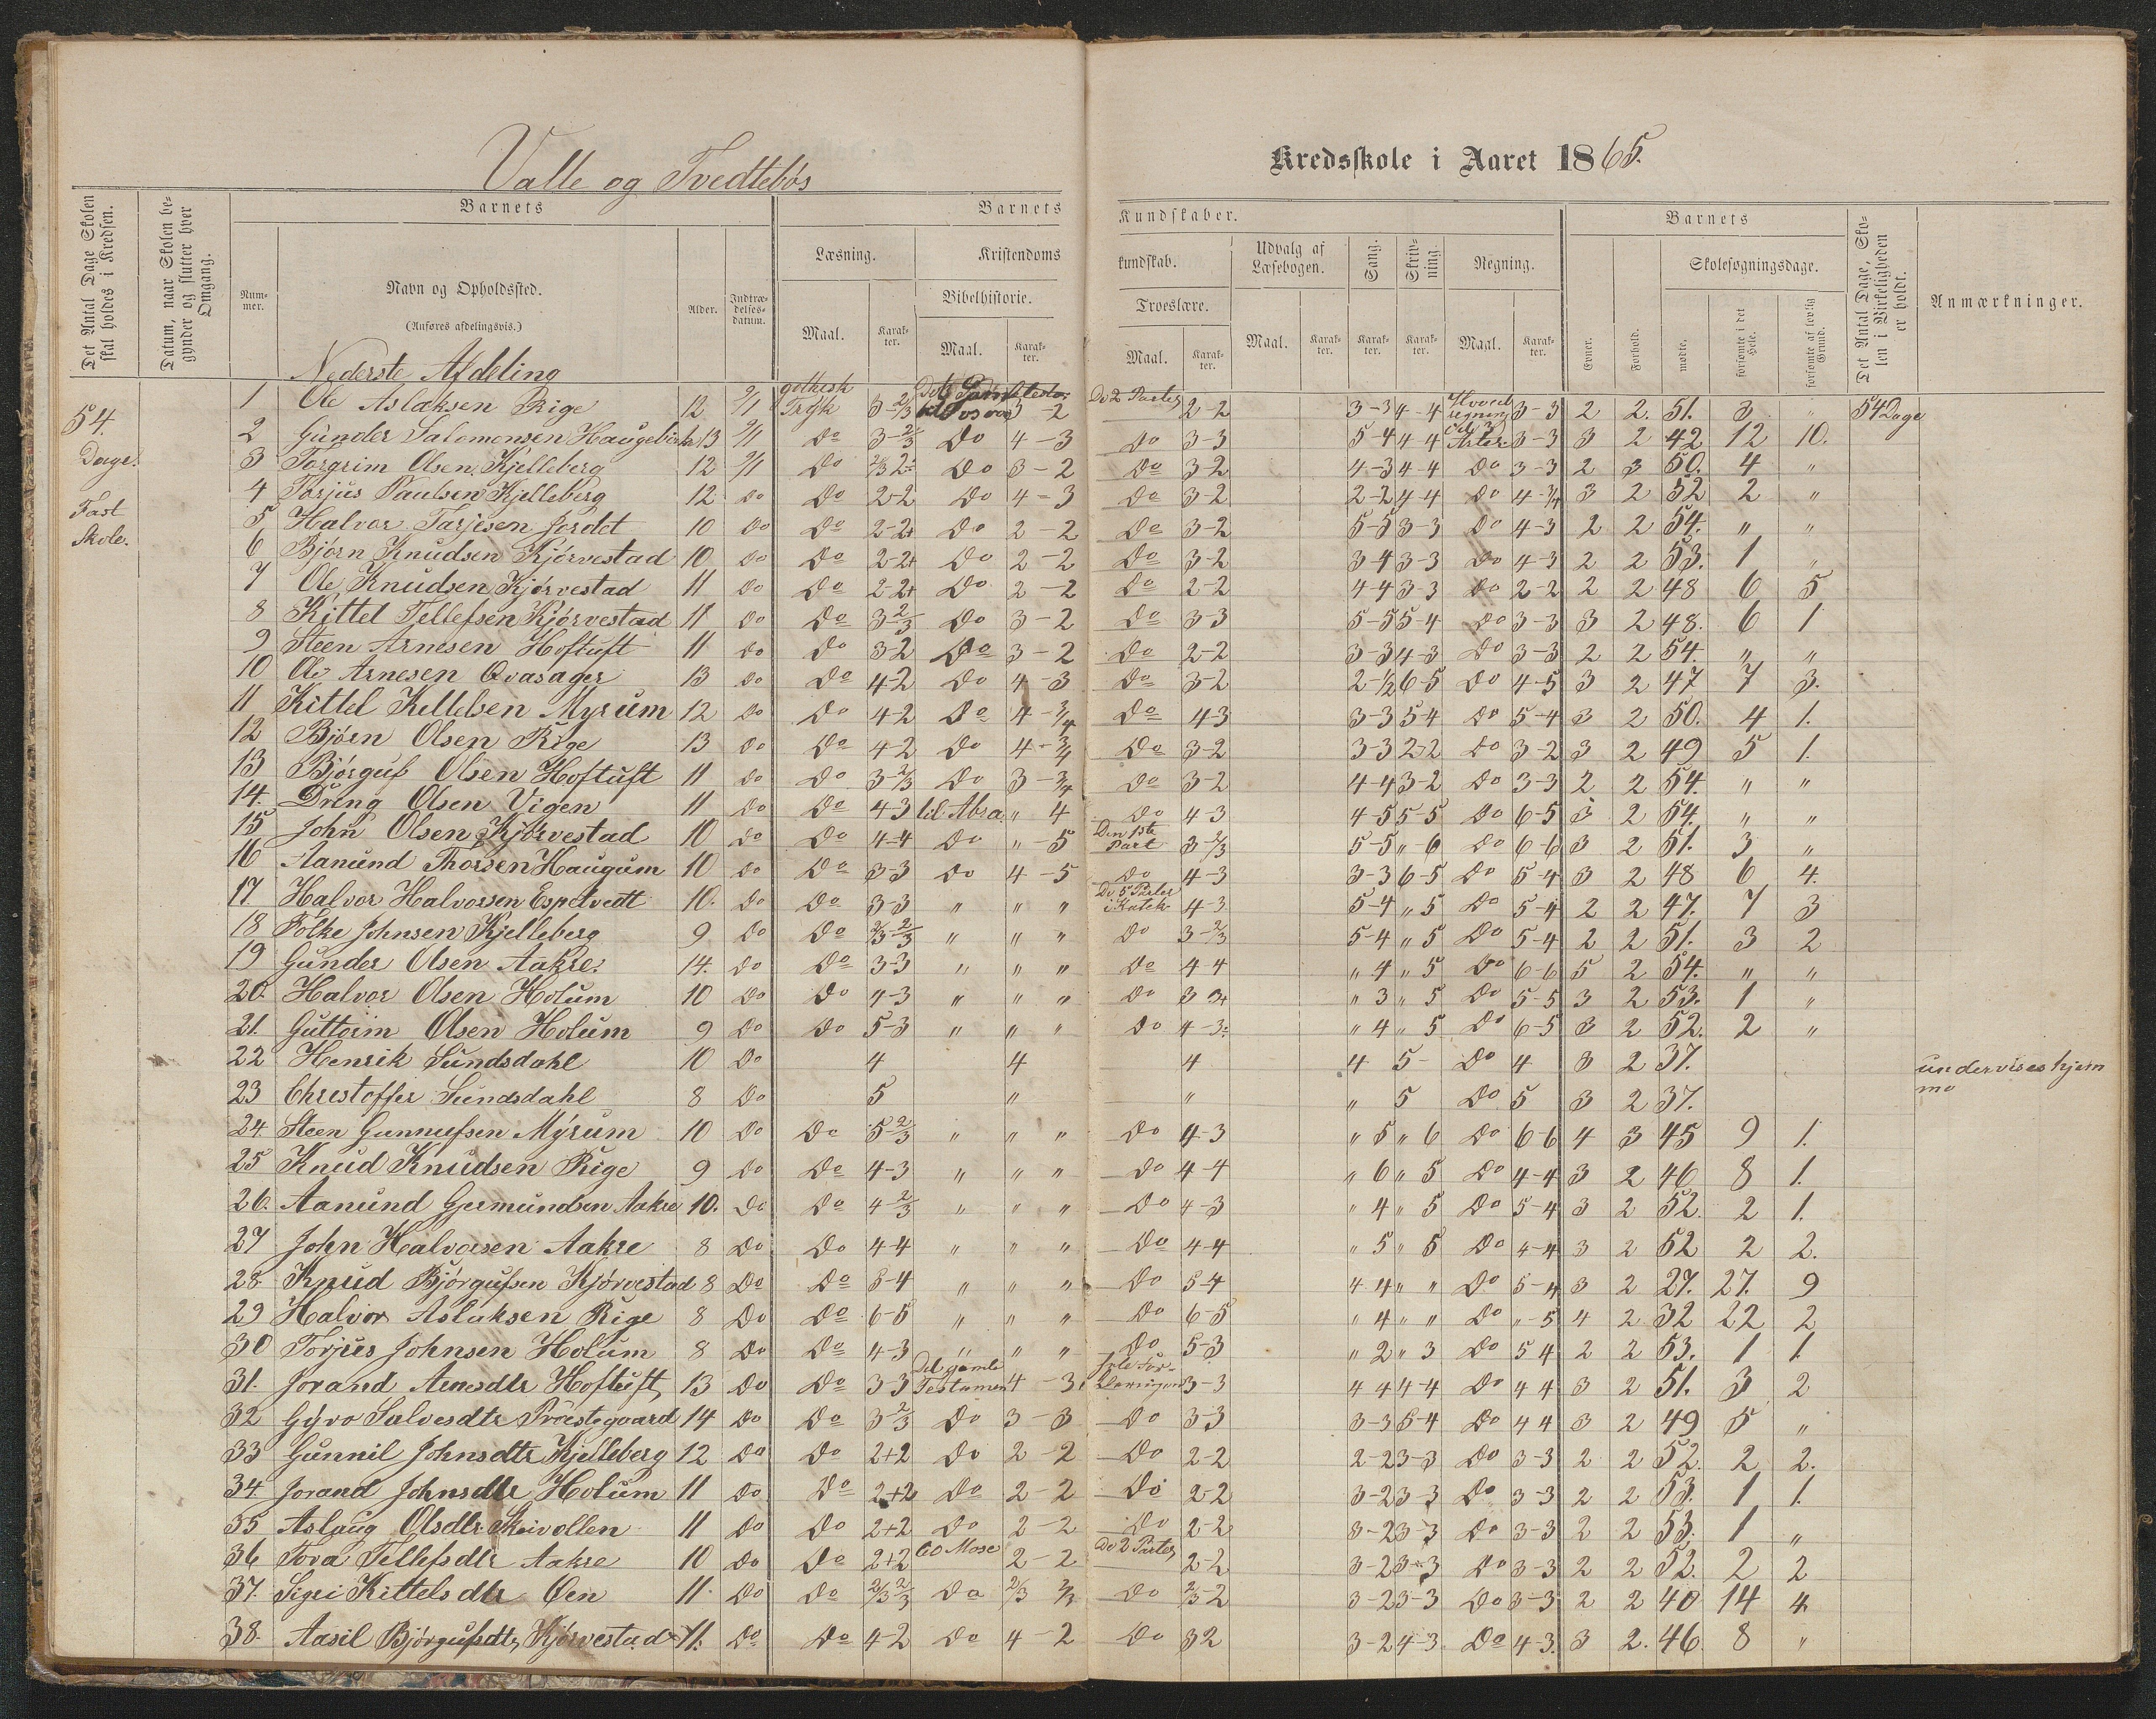 Valle og Tvedtebøs
Kredsskole i Aaret 1865.
Det Antal Dage Skolen skal holdes i Kredsen.
Datum, naar Skolen begynder og slutter hver Omgang.
Barnets
Barnets
Kundskaber.
Barnets
Det Antal Dage, Skolen i Virkeligheden er holdt.
Anmærkninger.
Nummer.
Navn og Opholdssted.
(Anføres afdelingsvis.)
Alder.
Indtrædelses-datum.
Læsning.
Kristendoms
kundskab.
Udvalg af Læsebogen.
Sang.
Skrivning.
Regning.
Evner.
Forhold.
Skolesøgningsdage.
Bibelhistorie.
Troeslære.
Maal. Karakter. Maal. Karakter. Maal. Karakter. Maal. Karakter. Karakter. Karakter. Maal. Karakter.
mødte. forsømte i det Hele. forsømte af lovlig Grund.
54. Dage. Fast Skole.
Nederste Afdeling
1 Ole Aslaksen Rige 12 2/1 gothesk Tryk 3-2/3 3-2 De 2 Parter 2-2 3-3 4-4 3-3 2 2. 51. 3 " 54 Dage
2 Gunder Salomonsen 13 2/1 Do 3-2/3 Do 4-3 Do 3-3 5-4 4-4 3-3 3 2 42 12 10.
3 Torgrim Olsen Kjelleberg 12 2/1 Do Do 3-2 Do 3-2 4-3 4-4 Do 3-3 2 3 50. 4 "
4 Torjus Paulsen Kjelleberg 12 Do Do 2-2 Do 4-3 Do 3-2 2-2 4-4 Do 4-3/4 3 2 52 2 "
5 Halvor Tarjesen Jordet 10 Do Do 2-2+ Do 2-2 Do 3-2 5-5 3-3 Do 4-3 2 2 54. " "
6 Bjørn Knudsen Kjørvestad 10 Do Do 2-2+ Do 2-2 Do 3-2 3-4 3-3 Do 4-3 2 2 53. 1 "
7 Ole Knudsen Kjørvestad 11 Do Do 2-2+ Do 2-2 Do 2-2 4-4 3-3 Do 2-2 2 2 48 6 5
8 Kittel Tellefsen Kjørvestad 11 Do Do 3-2/3 Do 3-2 Do 3-3 5-5 5-4 Do 3-3 3 2 48. 6 1
9 Steen Arnesen Hoftuft 11 Do Do 3-2 Do 3-2 Do 2-2 3-3 4-3 Do 3-3 2 2 54. " "
10 Ole Arnesen Qvasager 13 Do Do 4-2 Do 4-3 Do 3-2 2-1/2 6-5 Do 4-5 3 2 47 7 3.
11 Kittel Kellelsen Myrum 12 Do Do 4-2 Do 4-3/4 Do 4-3 3-3 5-4 Do 5-4 3 2 50. 4 1.
12 Bjørn Olsen Rige 13 Do Do 4-2 Do 4-3/4 Do 3-2 3-3 2-2 Do 3-2 3 2 49 5 1.
13 Bjørguf Olsen Hoftuft 11 Do Do 3-2/3 Do 3-3/4 Do 3-2 4-4 3-2 Do 3-3 2 2 54. " "
14. Dreng Olsen Vigen 11 Do Do 4-3 til Abra. " 4 Do 4-3 4-5 5-5 Do 6-5 3 2 54. " "
15 John Olsen Kjørvestad 10 Do Do 4-4 Do "-5 Den 1ste Part 3-2/3 5-5 "-6 Do 6-6 3 2 51. 3 "
16 Aanund Thorsen Haugum 10 Do Do 3-3 Do 4-5 Do 4-3 3-3 6-5 Do 5-4 3 2 48 6 4.
17 Halvor Halvorsen Espetvedt 10. Do Do 3-3 " " " De 5 Parter i Katek 4-3 5-4 " 5 Do 5-4 2 2 47. 7 3
18 Folke Johnsen Kjelleberg 9 Do Do 2/3-2/3 " " " Do 3-2/3 5-4 " 5 Do 5-4 2 2 51. 3 2
19 Gunder Olsen Aakre. 14. Do Do 3-3 " " " Do 4-4 " 4 " 5 Do 6-6 5 2 54. " "
20. Halvor Olsen Holum 10 Do Do 4-3 " " " Do 3 3+ " 3 " 5 Do 5-5 3 2 53. 1 "
21. Guttorm Olsen Holum 9 Do Do 5-3 " " " Do 4-3 " 4 " 5 Do 6-5 3 2 52. 2 "
22 Henrik Sundsdahl 10 Do 4 4 4 4 5- Do 4 3 2 37. undervises hjem
23 Chrestoffer Sundsdahl 8 Do 5 " " " 5 Do 5 3 2 37. me
24. Steen Gunnufsen Myrum 10 Do Do 5-2/3 " " " Do 4-3 " 5 " 6 Do 6-6 4 3 45 9 1.
25 Knud Knudsen Rige 9 Do Do 4-3 " " " Do 4-4 " 6 " 5 Do 4-4 3 2 46 8 1.
26. Aanund Germundsen Aakre 10. Do Do 4-2/3 " " " Do 4-3 " 4 " 5 Do 5-4 3 2 52. 2 1.
27 John Halvorsen Aakre 8 Do Do 4-4 " " " Do 4-4 " 5 " 5 Do 4-4 3 2 52 2 2.
28. Knud Bjørgufsen Kjørvestad 8 Do Do 5-4 " " " Do 5-4 4-4 " " Do 5-4 3 2 27. 27. 9
29 Halvor Aslaksen Rige 8 Do Do 6-5 " " " Do 6-5 " 4 " " Do "-5 4 2 32 22 2
30 Torjus Johnsen Holum 8 Do Do 4-3 " " " Do 5-3 " 2 " 3 Do 5 4 2 2 53. 1 1.
31. Jorand Arnesdtr Hoftuft 13 Do Do 3-3 Det gamle Testamen 4-3 hele Forklaringen 3-3 4 4 4-4 Do 4 4 3 2 51. 3 2
32 Gyro Salvesdtr Præstegaard 14 Do Do 3-2/3 Do 3-3 Do 3-3 3-3 5-4 Do 4 4 3 2 49 5 "
33 Gunnil Johnsdtr Kjelleberg 12 Do Do 2+2 Do 2-2 Do 2-2 2-2 3-3 Do 3-3 2 2 52. 2 2.
34. Jorand Johnsdtr Holum 11 Do Do 2+2 Do 2-2 Do 2-2 3-2 3-3 Do 3-3 2 2 53. 1 1.
35 Aslaug Olsdtr Skeivollen 11 Do Do 2+2 Do 2-2 Do 2-2 3-2 3-3 Do 3-3 2 2 53. 1 "
36 Tora Tellefsdtr Aakre 10 Do Do 2+2 Mose 2-2 De 2 Parter 2-2 3-2 3-3 Do 3-3 2 2 52. 2 2
37. Sigri Kittelsdtr Øen 11. Do Do 2/3-2/3 Do 2/3 2/3 Do 2/3-2 3-2 3-3 Do 3-3 2 2 40 14 4
38. Aasil Bjørgufsdtr Kjørvestad 11. Do Do 4-2 Do 4-2 Do 3 2 3-2 4-3 Do 4-3. 3 2. 46. 8 "